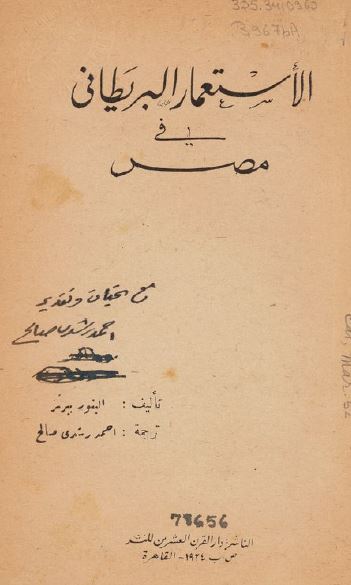 325.3410962
B967bA
الأستعمار البريطاني
في
مصر
مع تحيات وتقدير
احمد رشدى صالح
تأليف : الينور بيرنز
ترجمة : احمد رشدى صالح
78656
الناشر: دار القرن العشرين للنشر
ص ب ١٩٢٤ - القاهرة